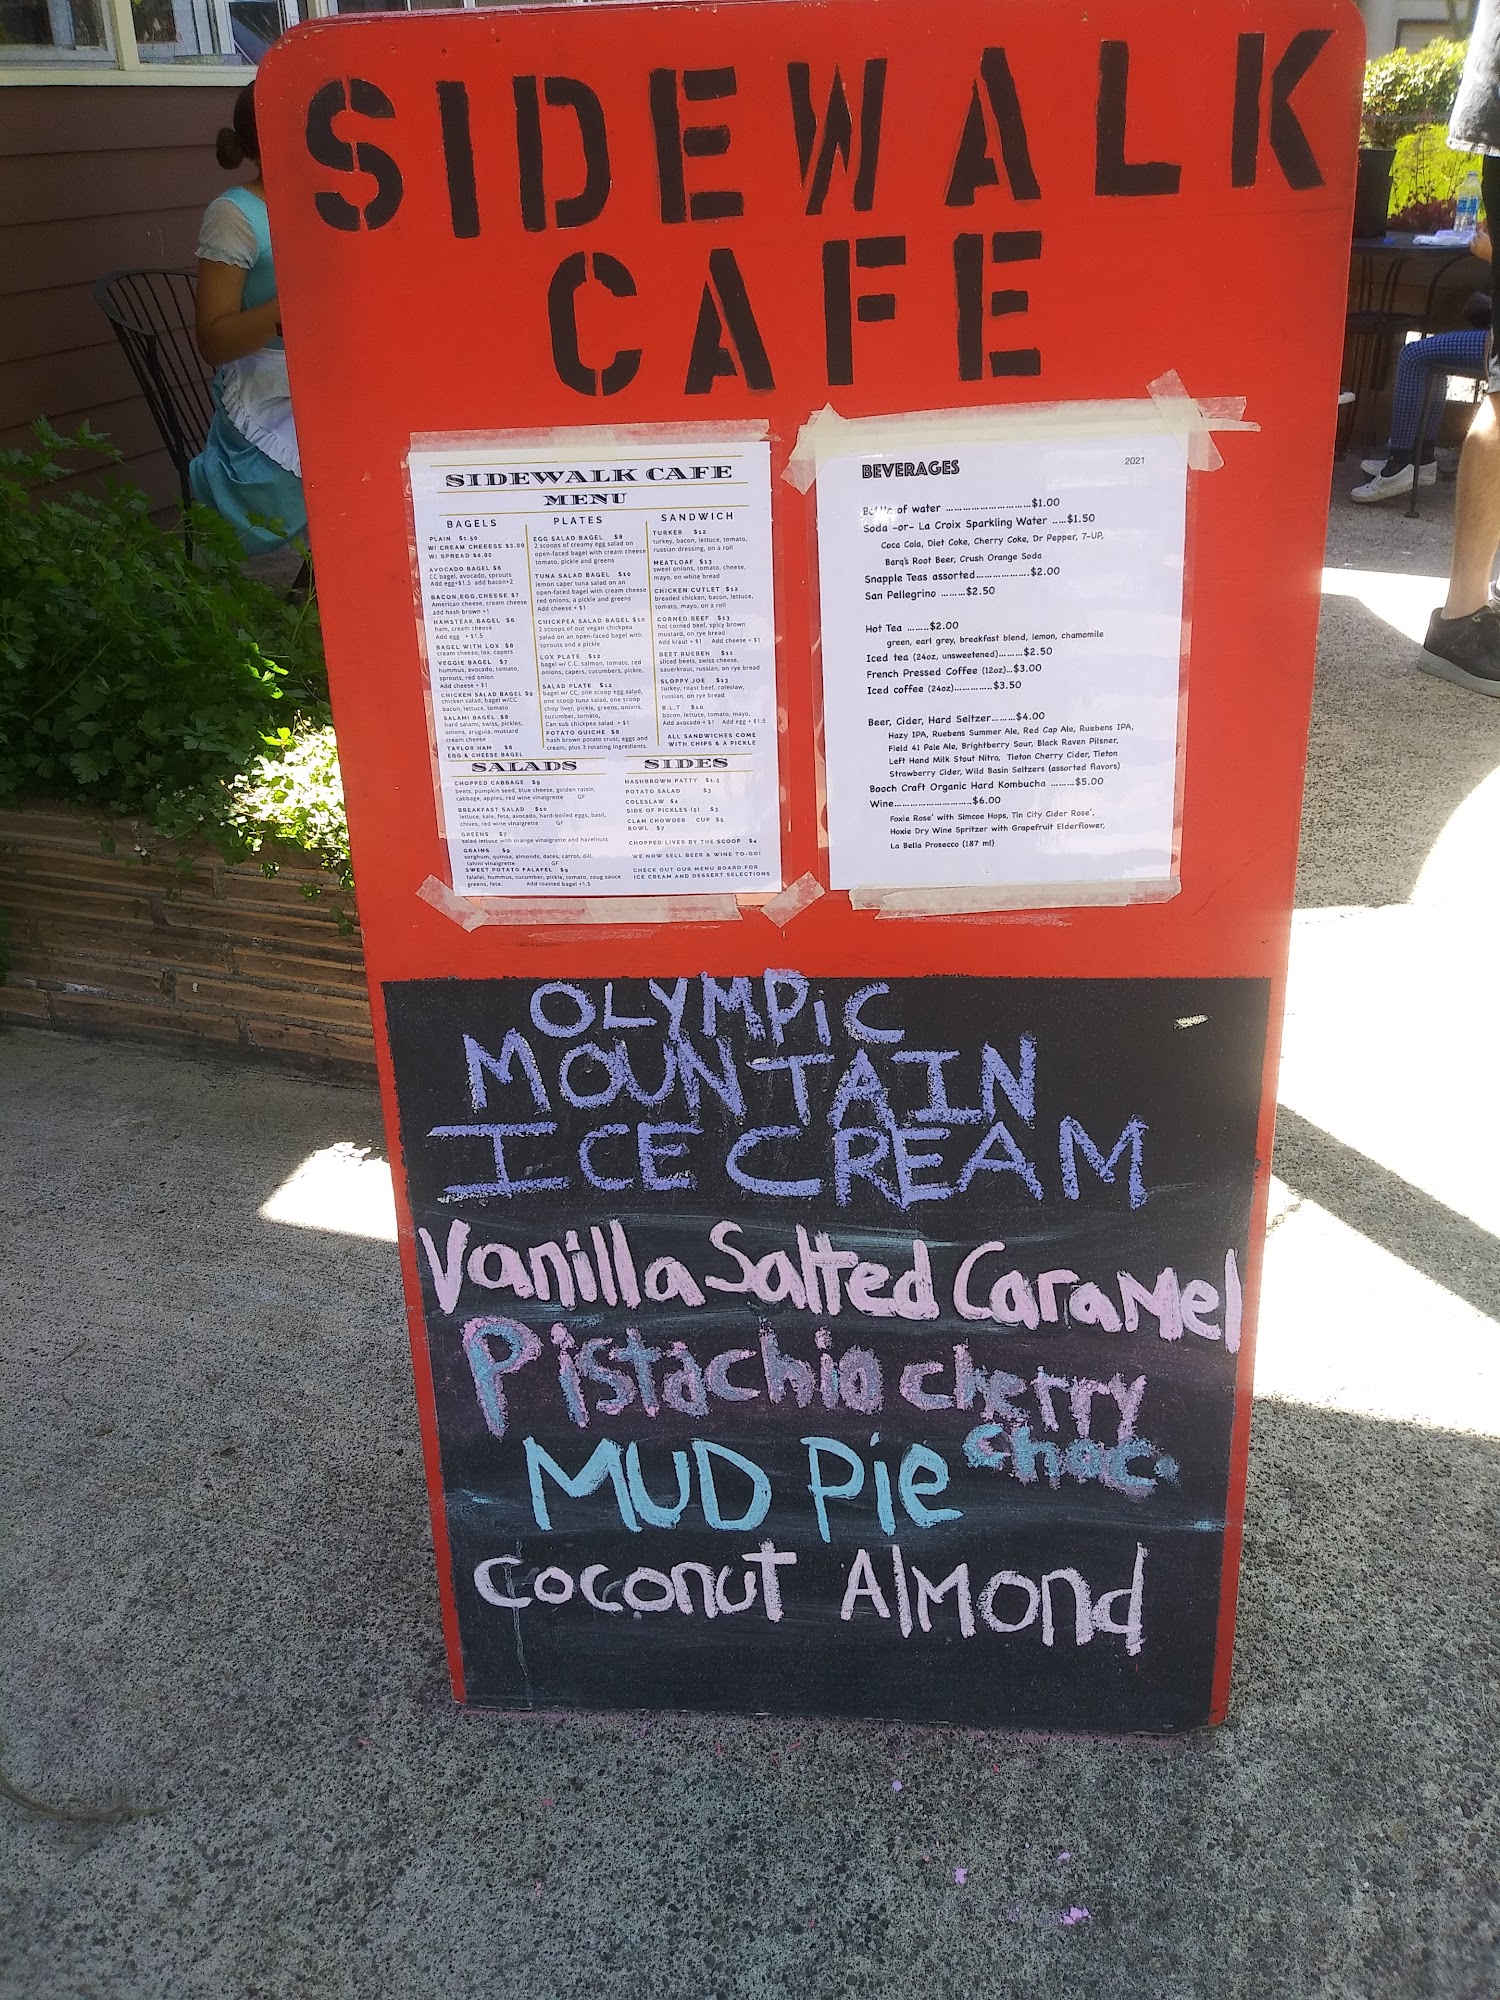 SIDEWALK
CAFE
SIDEWALK CAFE
MENU
BAGELS
PLAIN $1.50
W/ CREAM CHEEESE $3.00
W/ SPREAD $4.00
AVOCADO BAGEL $8
CC bagel, avocado, sprouts
Add egg+$1.5 add bacon+2
BACON,EGG,CHEESE $7
American cheese, cream cheese
add hash brown +1
HAMSTEAK BAGEL $6
ham, cream cheese
Add egg + $1.5
BAGEL WITH LOX $8
cream cheese, lox, capers
VEGGIE BAGEL $7
hummus, avocado, tomato,
sprouts, red onion
Add cheese + $1
CHICKEN SALAD BAGEL $9
chicken salad, bagel w/CC
bacon, lettuce, tomato
SALAMI BAGEL $8
hard salami, swiss, pickles,
onions, arugula, mustard
cream cheese
TAYLOR HAM $8
EGG & CHEESE BAGEL
PLATES
EGG SALAD BAGEL $8
2 scoops of creamy egg salad on
open-faced bagel with cream cheese
tomato, pickle and greens
TUNA SALAD BAGEL $10
lemon caper tuna salad on an
open-faced bagel with cream cheese
red onions, a pickle and greens
Add cheese + $1
CHICKPEA SALAD BAGEL $10
2 scoops of our vegan chickpea
salad on an open-faced bagel with
sprouts and a pickle
LOX PLATE $12
bagel w/ C.C. salmon, tomato, red
onions, capers, cucumbers, pickle,
SALAD PLATE $12
bagel w/ CC, one scoop egg salad,
one scoop tuna salad, one scoop
chop liver, pickle, greens, onions,
cucumber, tomato,
Can sub chickpea salad + $1
POTATO QUICHE $8
hash brown potato trust, eggs and
cream, plus 3 rotating ingredients.
SANDWICH
TURKER $12
turkey, bacon, lettuce, tomato,
russian dressing, on a roll
MEATLOAF $13
sweet onions, tomato, cheese,
mayo, on white bread
CHICKEN CUTLET $12
breaded chicken, bacon, lettuce,
tomato, mayo, on a roll
CORNED BEEF $13
hot corned beef, spicy brown
mustard, on rye bread
Add kraut + $1 Add cheese + $1
BEET RUEBEN $11
sliced beets, swiss cheese,
sauerkraut, russian, on rye bread
SLOPPY JOE $13
turkey, roast beef, coleslaw,
russian, on rye bread
B.L.T $10
bacon, lettuce, tomato, mayo,
Add avocado + $1 Add egg + $1.5
ALL SANDWICHES COME
WITH CHIPS & A PICKLE
SALADS
CHOPPED CABBAGE $9
beets, pumpkin seed, blue cheese, golden raisin,
cabbage, apples, red wine vinaigrette GF
BREAKFAST SALAD $10
lettuce, kale, feta, avocado, hard-boiled eggs, basil,
chives, red wine vinaigrette GF
GREENS $7
salad lettuce with orange vinaigrette and hazelnuts
GRAINS $9
sorghum, quinoa, almonds, dates, carrot, dill,
tahini vinaigrette GF
SWEET POTATO FALAFEL $9
falafel, hummus, cucumber, pickle, tomato, zoug sauce
greens, feta. Add toasted bagel +1.5
SIDES
HASHBROWN PATTY $1.5
POTATO SALAD $3
COLESLAW $4
SIDE OF PICKLES (5) $3
CLAM CHOWDER CUP $5
BOWL $7
CHOPPED LIVER BY THE SCOOP $4
WE NOW SELL BEER & WINE TO-GO!
CHECK OUT OUR MENU BOARD FOR
ICE CREAM AND DESSERT SELECTIONS
BEVERAGES 2021
Bottle of water ........................$1.00
Soda -or- La Croix Sparkling Water .....$1.50
Coca Cola, Diet Coke, Cherry Coke, Dr Pepper, 7-UP,
Barq's Root Beer, Crush Orange Soda
Snapple Teas assorted..................$2.00
San Pellegrino .........$2.50
Hot Tea ........$2.00
green, earl grey, breakfast blend, lemon, chamomile
Iced tea (24oz, unsweetened).........$2.50
French Pressed Coffee (12oz)...$3.00
Iced coffee (24oz).............$3.50
Beer, Cider, Hard Seltzer.........$4.00
Hazy IPA, Ruebens Summer Ale, Red Cap Ale, Ruebens IPA,
Field 41 Pale Ale, Brightberry Sour, Black Raven Pilsner,
Left Hand Milk Stout Nitro, Tieton Cherry Cider, Tieton
Strawberry Cider, Wild Basin Seltzers (assorted flavors)
Booch Craft Organic Hard Kombucha ........$5.00
Wine..........................$6.00
Foxie Rose' with Simcoe Hops, Tin City Cider Rose',
Hoxie Dry Wine Spritzer with Grapefruit Elderflower,
La Bella Prosecco (187 ml)
OLYMPiC
MOUNTAIN
ICE CREAM
Vanilla Salted Caramel
Pistachio cherry
choc.
MUD Pie
Coconut Almond